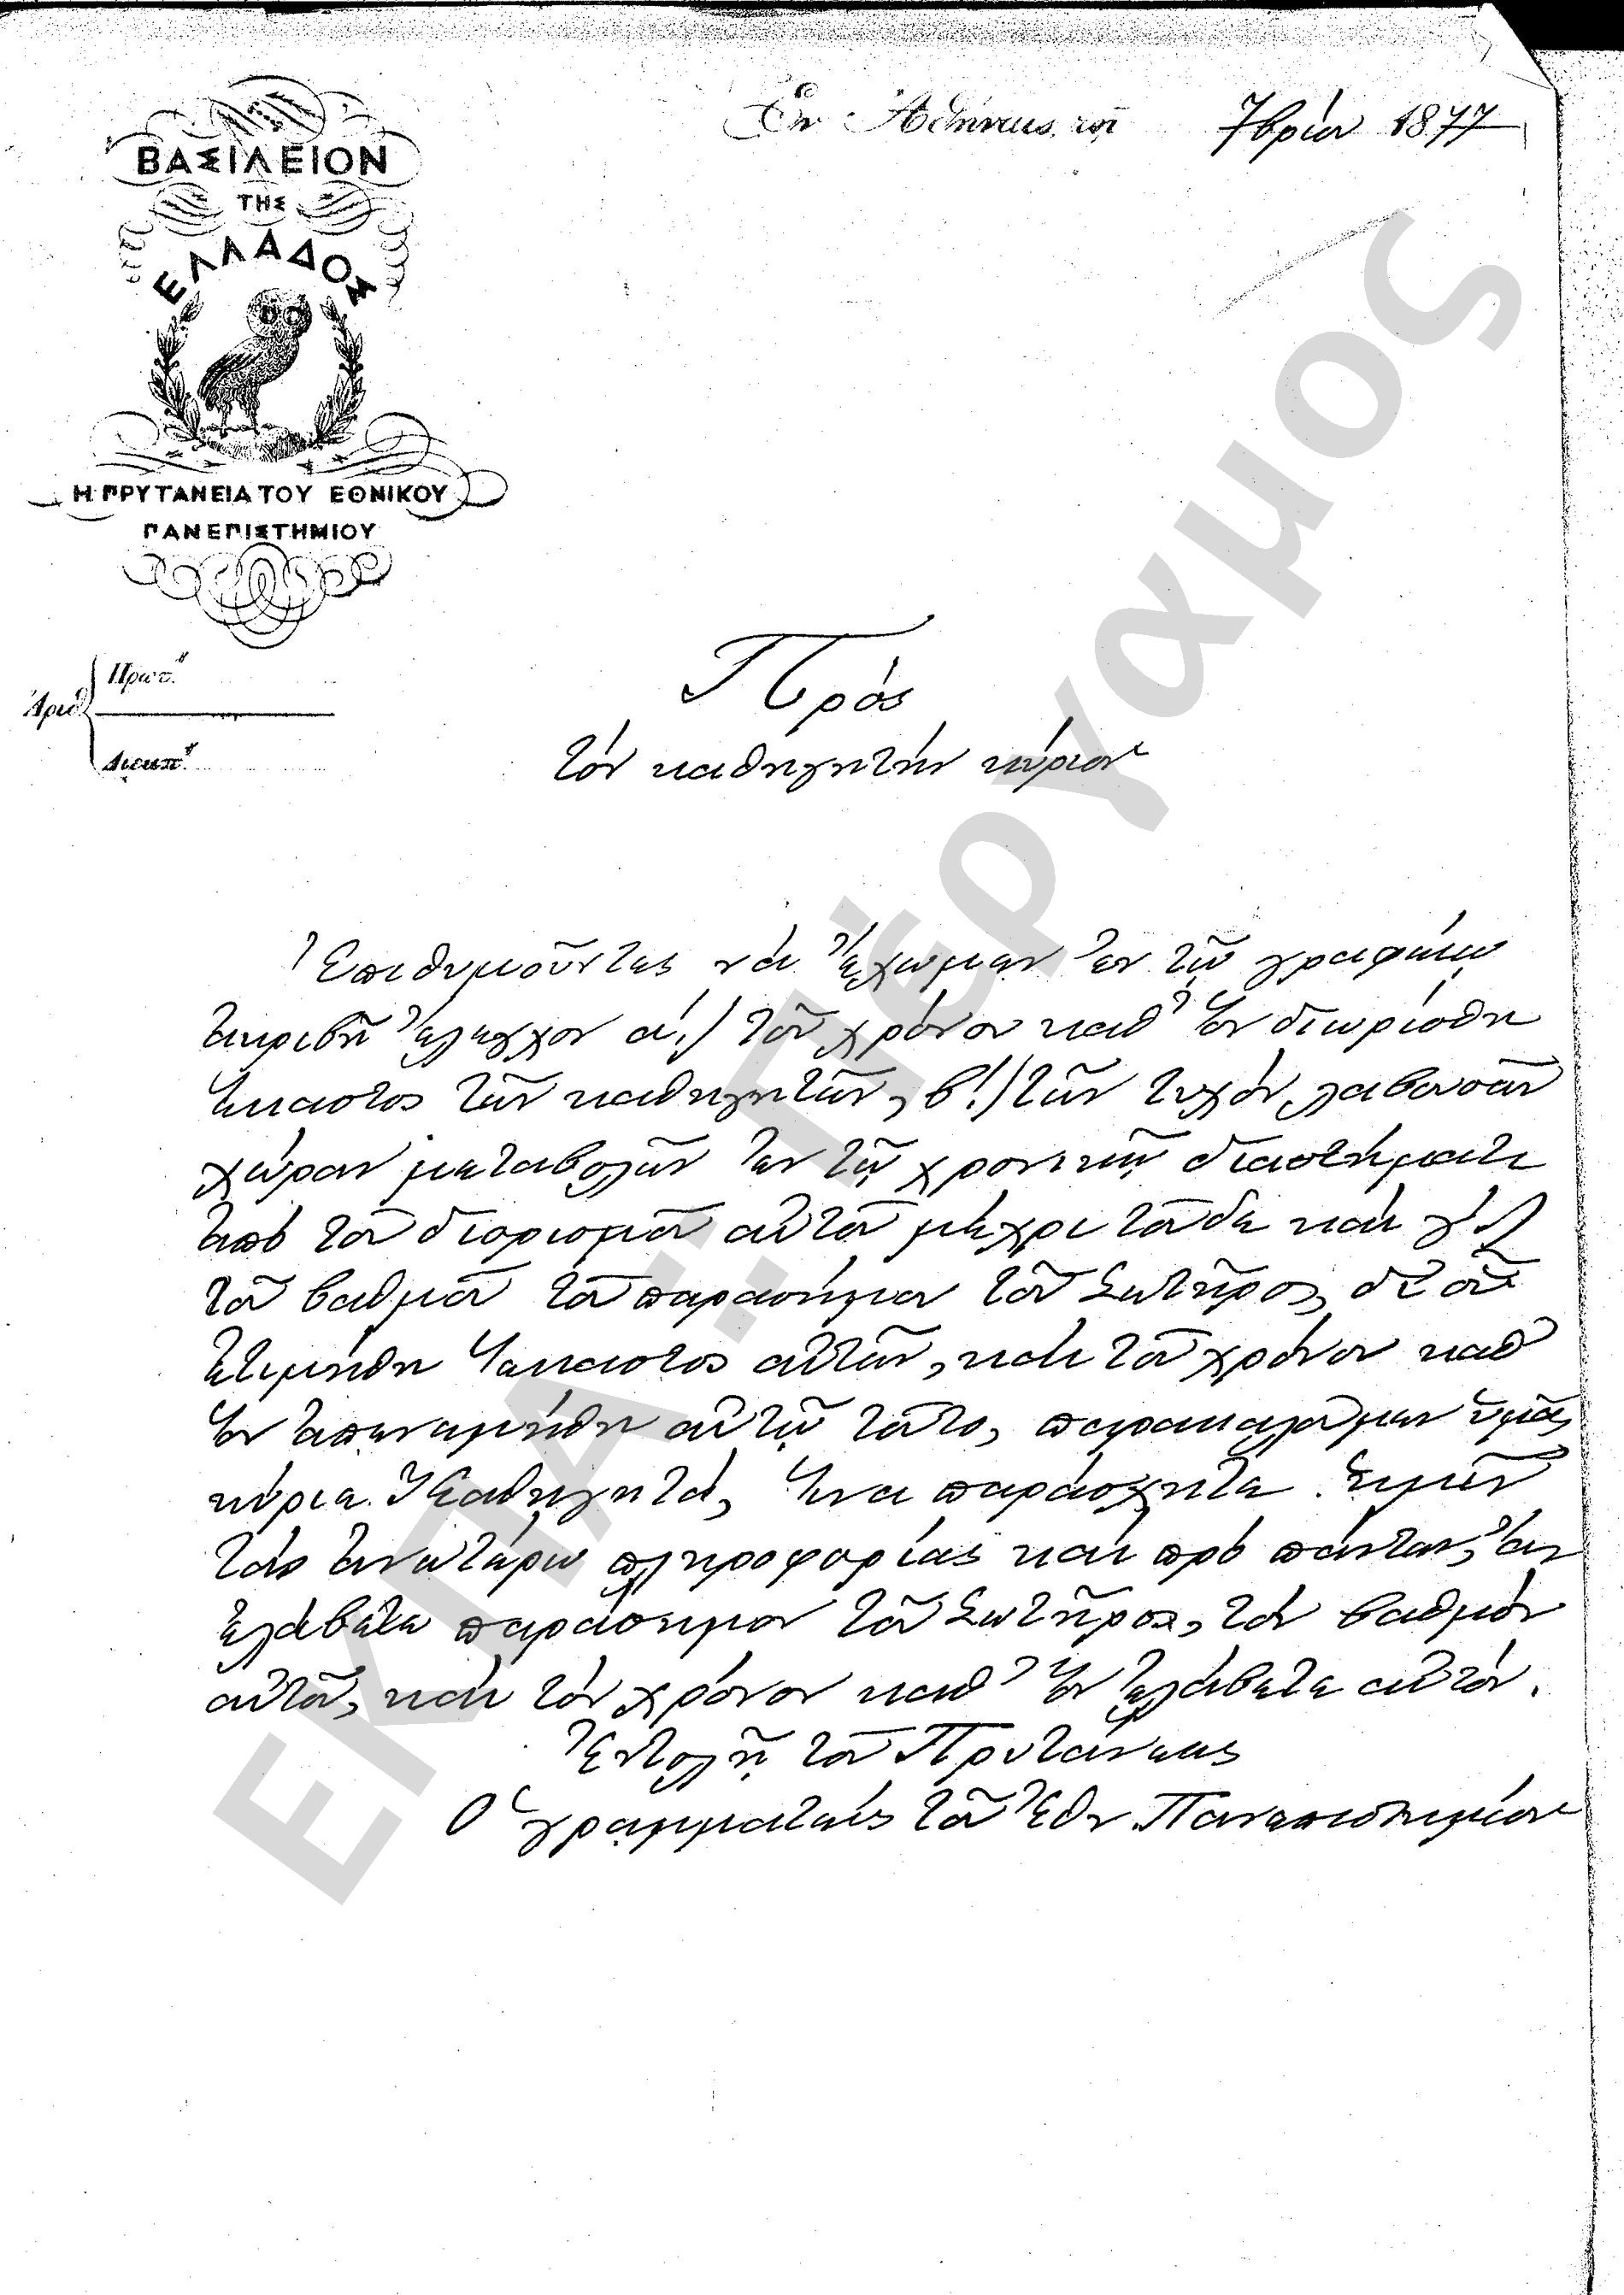 Ἐν Ἀθήναις τῇ 7βρίου 1877
ΒΑΣΙΛΕΙΟΝ
ΤΗΣ
ΕΛΛΑΔΟΣ
Η ΠΡΥΤΑΝΕΙΑ ΤΟΥ ΕΘΝΙΚΟΥ
ΠΑΝΕΠΙΣΤΗΜΙΟΥ
Πρωτ.
Ἀριθ.
Διεκπ.
Πρός
τόν καθηγητήν κύριον
Ἐπιθυμοῦντες νά ἔχωμεν ἐν τῷ γραφείῳ
ἀκριβῆ ἔλεγχον α΄.) τοῦ χρόνου καθ' ὅν διωρίσθη
ἕκαστος τῶν καθηγητῶν, β΄.) τῶν τυχόν λαβουσῶν
χώραν μεταβολῶν ἐν τῷ χρονικῷ διαστήματι
ἀπό τοῦ διορισμοῦ αὐτοῦ μέχρι τοῦδε καί γ΄.)
τοῦ βαθμοῦ τοῦ παρασήμου τοῦ Σωτῆρος, δι' οὗ
ἐτιμήθη ἕκαστος αὐτῶν, καί τοῦ χρόνου καθ'
ὅν ἀπενεμήθη αὐτῷ τοῦτο, παρακαλοῦμεν ὑμᾶς,
κύριε Καθηγητά, ἵνα παράσχητε ἡμῖν
τάς ἀνωτέρω πληροφορίας καί πρό πάντων, ἄν
ἐλάβετε παράσημον τοῦ Σωτῆρος, τόν βαθμόν
αὐτοῦ, καί τόν χρόνον καθ' ὅν ἐλάβετε αὐτόν.
Ἐντολῇ τοῦ Πρυτάνεως
Ὁ γραμματεύς τοῦ Ἐθν. Πανεπιστημίου
ΕΚΠΑ: Πέργαμος